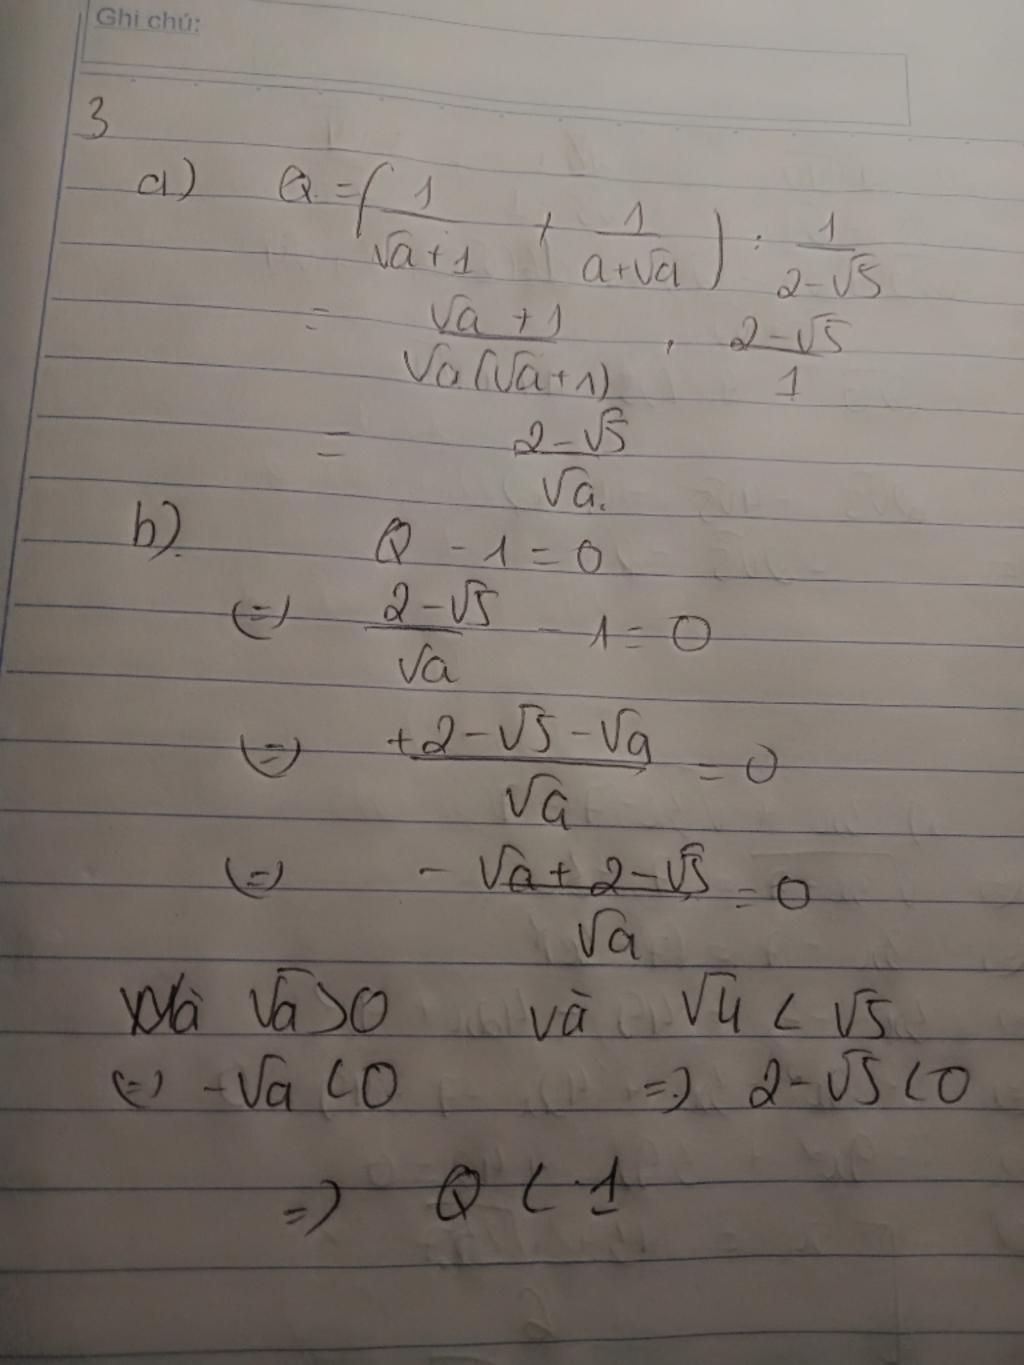 Ghi chú:
3
a) Q = ( 1/(√a+1) + 1/(a+√a) ) : 1/(2-√5)
= (√a + 1)/(√a(√a+1)) . (2-√5)/1
= (2-√5)/√a.
b) Q - 1 = 0
(=) (2-√5)/√a - 1 = 0
(=) (+2-√5-√a)/√a = 0
(=) (-√a + 2-√5)/√a = 0
Mà √a > 0 và √4 < √5
(=) -√a < 0 => 2-√5 < 0
=> Q < 1